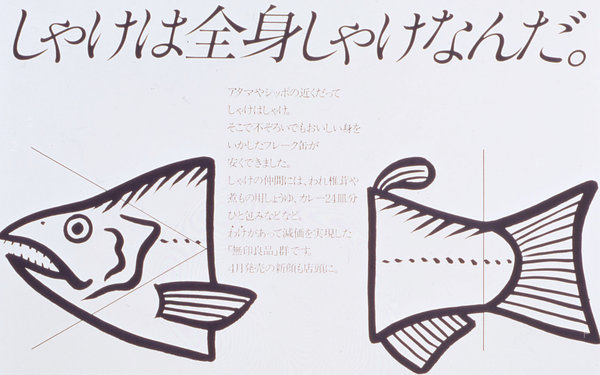 しゃけは全身しゃけなんだ。
アタマやシッポの近くだって
しゃけはしゃけ。
そこで不ぞろいでもおいしい身を
いかしたフレーク缶が
安くできました。
しゃけの仲間には、われ椎茸や
煮もの用しょうゆ、カレー24皿分
ひと包みなどなど。
わけがあって減価を実現した
「無印良品」群です。
4月発売の新顔も店頭に。